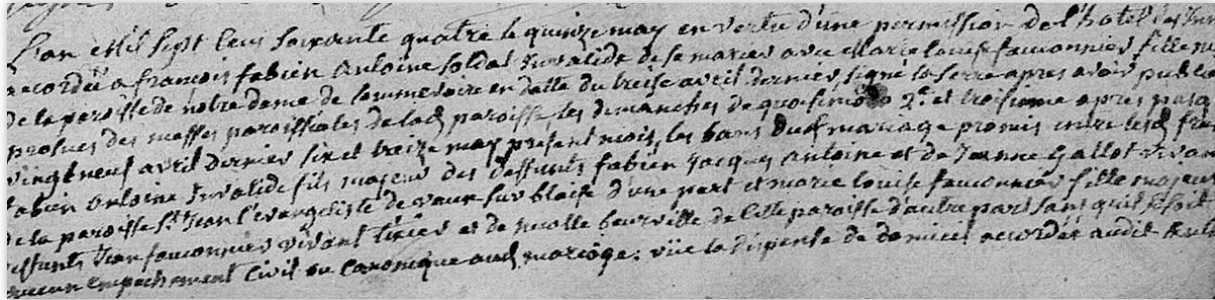 L'an mil sept cens soixante quatre le quinze may en vertu d'une permission de l'hotel des Inv
accordée a francois fabien Antoine soldat Invalide de se marier avec Marie louise fauconnier fille m
de la paroisse de notre dame de en datte du treise avril dernier, signé la serre apres avoir publié
prosnes des messes paroissiales de lad paroisse les dimanches de quasimodo 2e et troisieme apres pasq
vingt neuf avril dernier six et treize may present mois, les bans du mariage promis entre lesd fra
fabien Antoine Invalide fils majeur des deffunts fabien Jacques Antoine et de Jeanne Gallot vivan
de la paroisse St Jean l'evangeliste de vaux sur blaise d'une part et marie louise fauconnier fille majeur
deffunts Jean fauconnier vivant et de nicolle beurville de cette paroisse d'autre part sans qu'il se soit
aucun empechement civil ou canonique aud mariage; vüe la dispense de domicil accordée audit